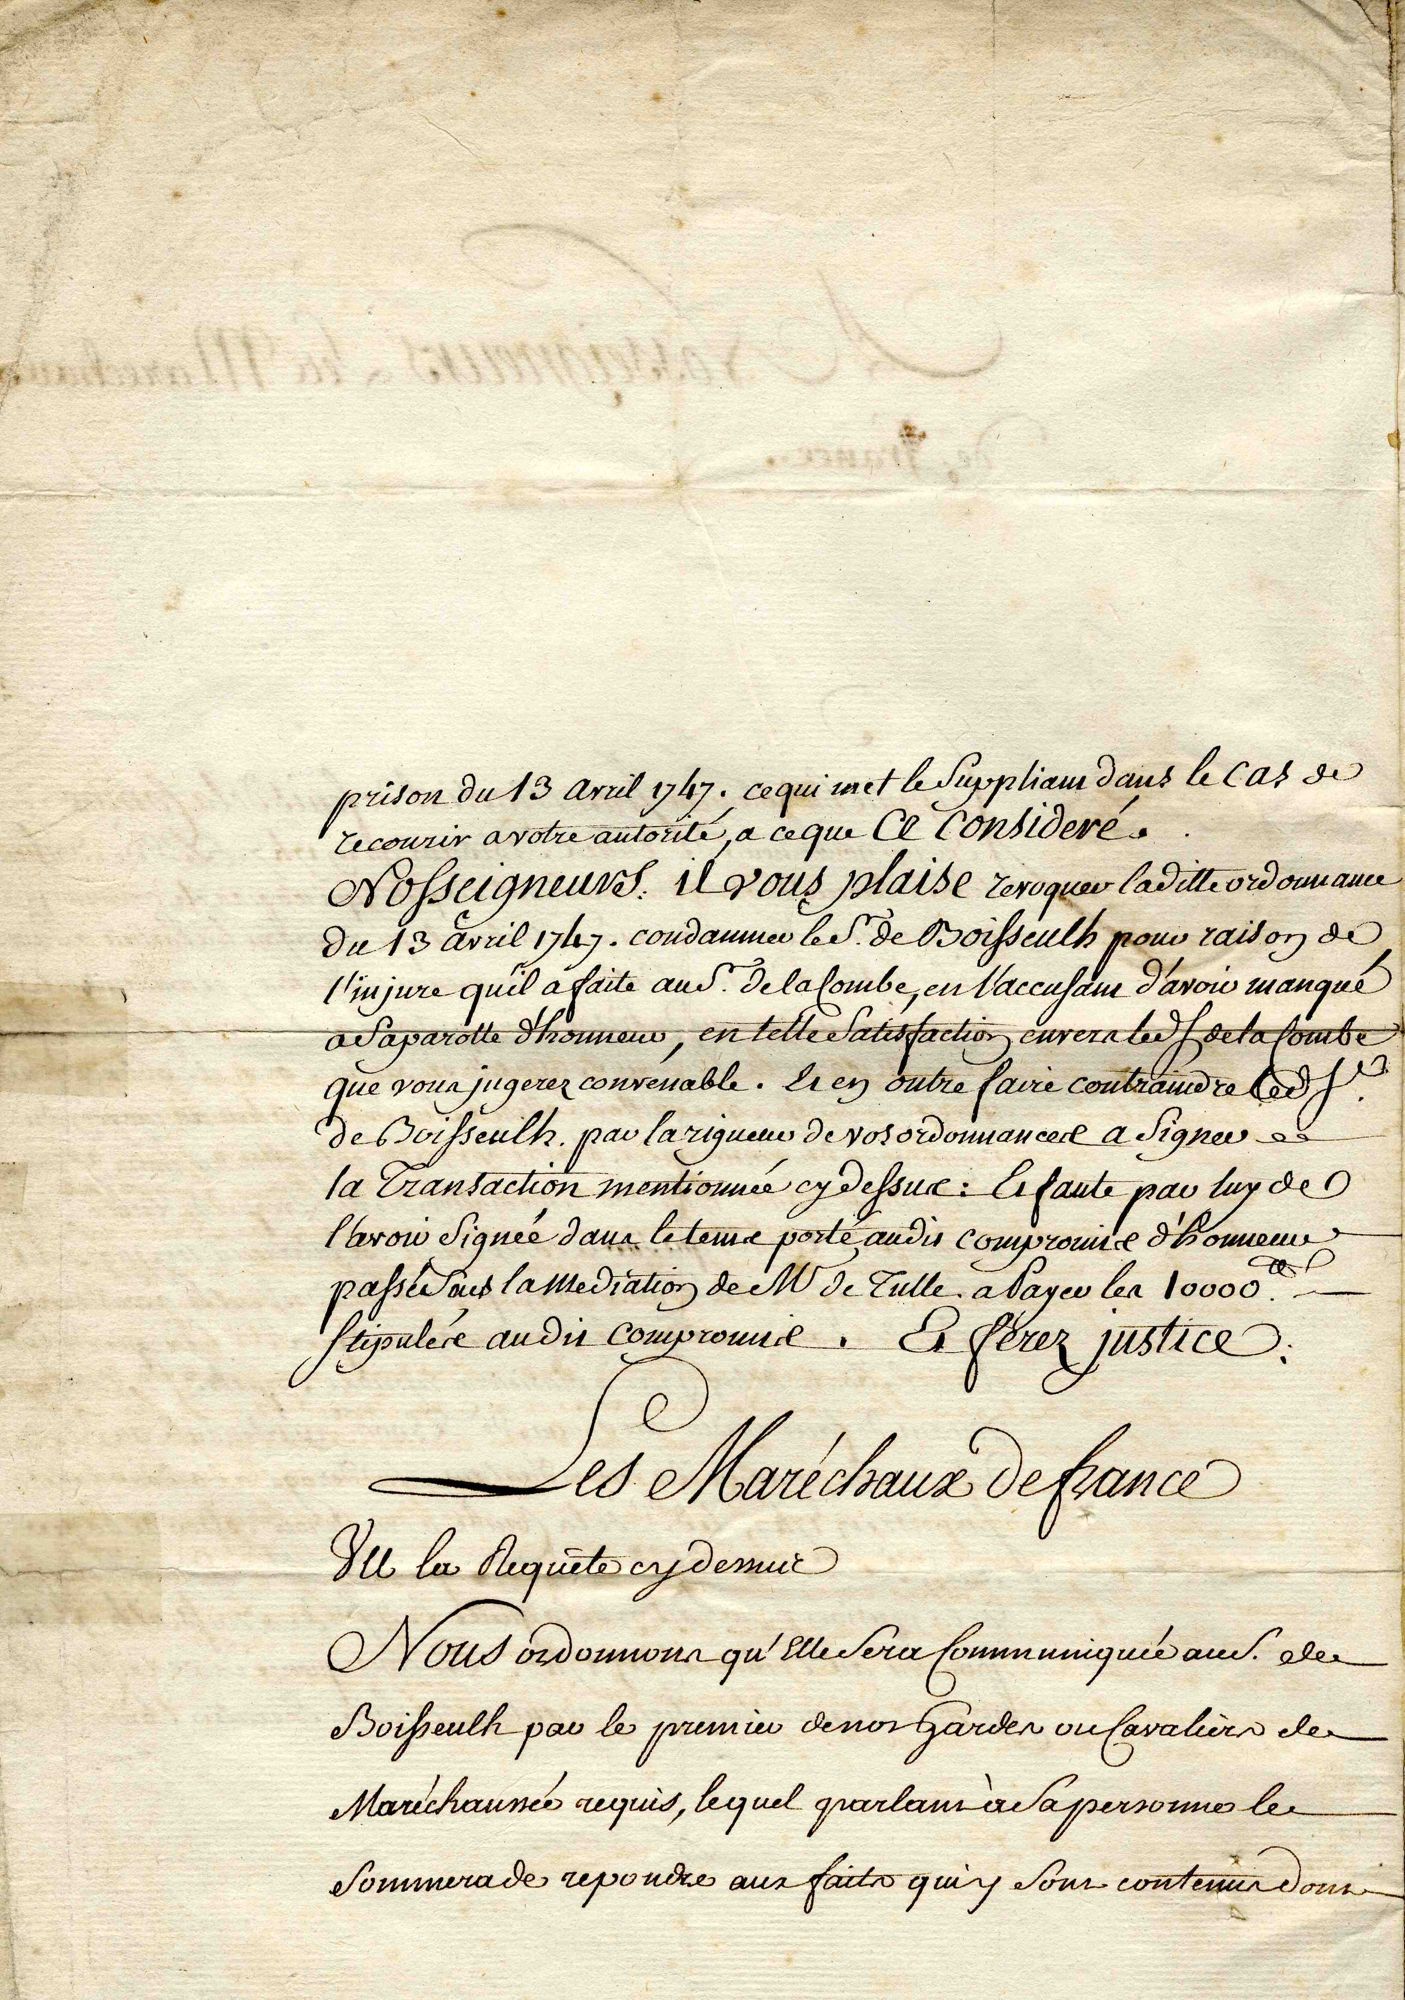 prison du 13 avril 1747. ce qui met le Suppliant dans le cas de
recourir a votre autorité, a ce que Ce Consideré.
Nosseigneurs. il vous plaise revoquer laditte ordonnance
du 13 avril 1747. condamner le Sr. de Boisseulh pour raison de
l'injure qu'il a faite au Sr. de la Combe, en l'accusant d'avoir manqué
a sa parolle d'honneur, en telle Satisfaction envers led S. de la Combe
que vous jugerez convenable. Et en outre faire contraindre led Sr.
de Boisseulh. par la rigueur de vos ordonnances a Signer
la Transaction mentionnée cy dessus: Et faute par luy de
l'avoir Signée dans le tems porté audit compromis d'honneur
passé sous la Mediation de Mr de Tulle. a Payer les 10000 ll.
Stipulés audit compromis. Et ferez justice.
Les Maréchaux de france
Vu la Requête cy dessus
Nous ordonnons qu'Elle Sera Communiquée au S. de
Boisseulh par le premier de nos Gardes ou Cavaliers de
Maréchaussée requis, lequel parlant à Sa personne le
Sommera de repondre aux faits qui y Sont contenus dont